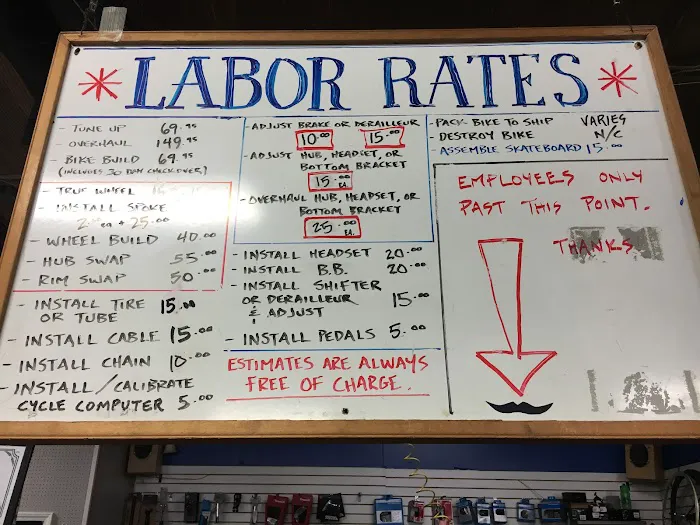 LABOR RATES
- TUNE UP 69.95
- OVERHAUL 149.95
- BIKE BUILD 69.95
(INCLUDES 30 DAY CHECK OVER)
- TRUE WHEEL
- INSTALL SPOKE
ea + 25.00
- WHEEL BUILD 40.00
- HUB SWAP 55.00
- RIM SWAP 50.00
- INSTALL TIRE
OR TUBE 15.00
- INSTALL CABLE 15.00
- INSTALL CHAIN 10.00
- INSTALL/CALIBRATE
CYCLE COMPUTER 5.00
- ADJUST BRAKE OR DERAILLEUR
10.00 15.00
- ADJUST HUB, HEADSET, OR
BOTTOM BRACKET
15.00 EA.
- OVERHAUL HUB, HEADSET, OR
BOTTOM BRACKET
25.00 EA.
- INSTALL HEADSET 20.00
- INSTALL B.B. 20.00
- INSTALL SHIFTER
OR DERAILLEUR 15.00
& ADJUST
- INSTALL PEDALS 5.00
ESTIMATES ARE ALWAYS
FREE OF CHARGE.
- PACK BIKE TO SHIP VARIES
- DESTROY BIKE N/C
- ASSEMBLE SKATEBOARD 15.00
EMPLOYEES ONLY
PAST THIS POINT.
THANKS